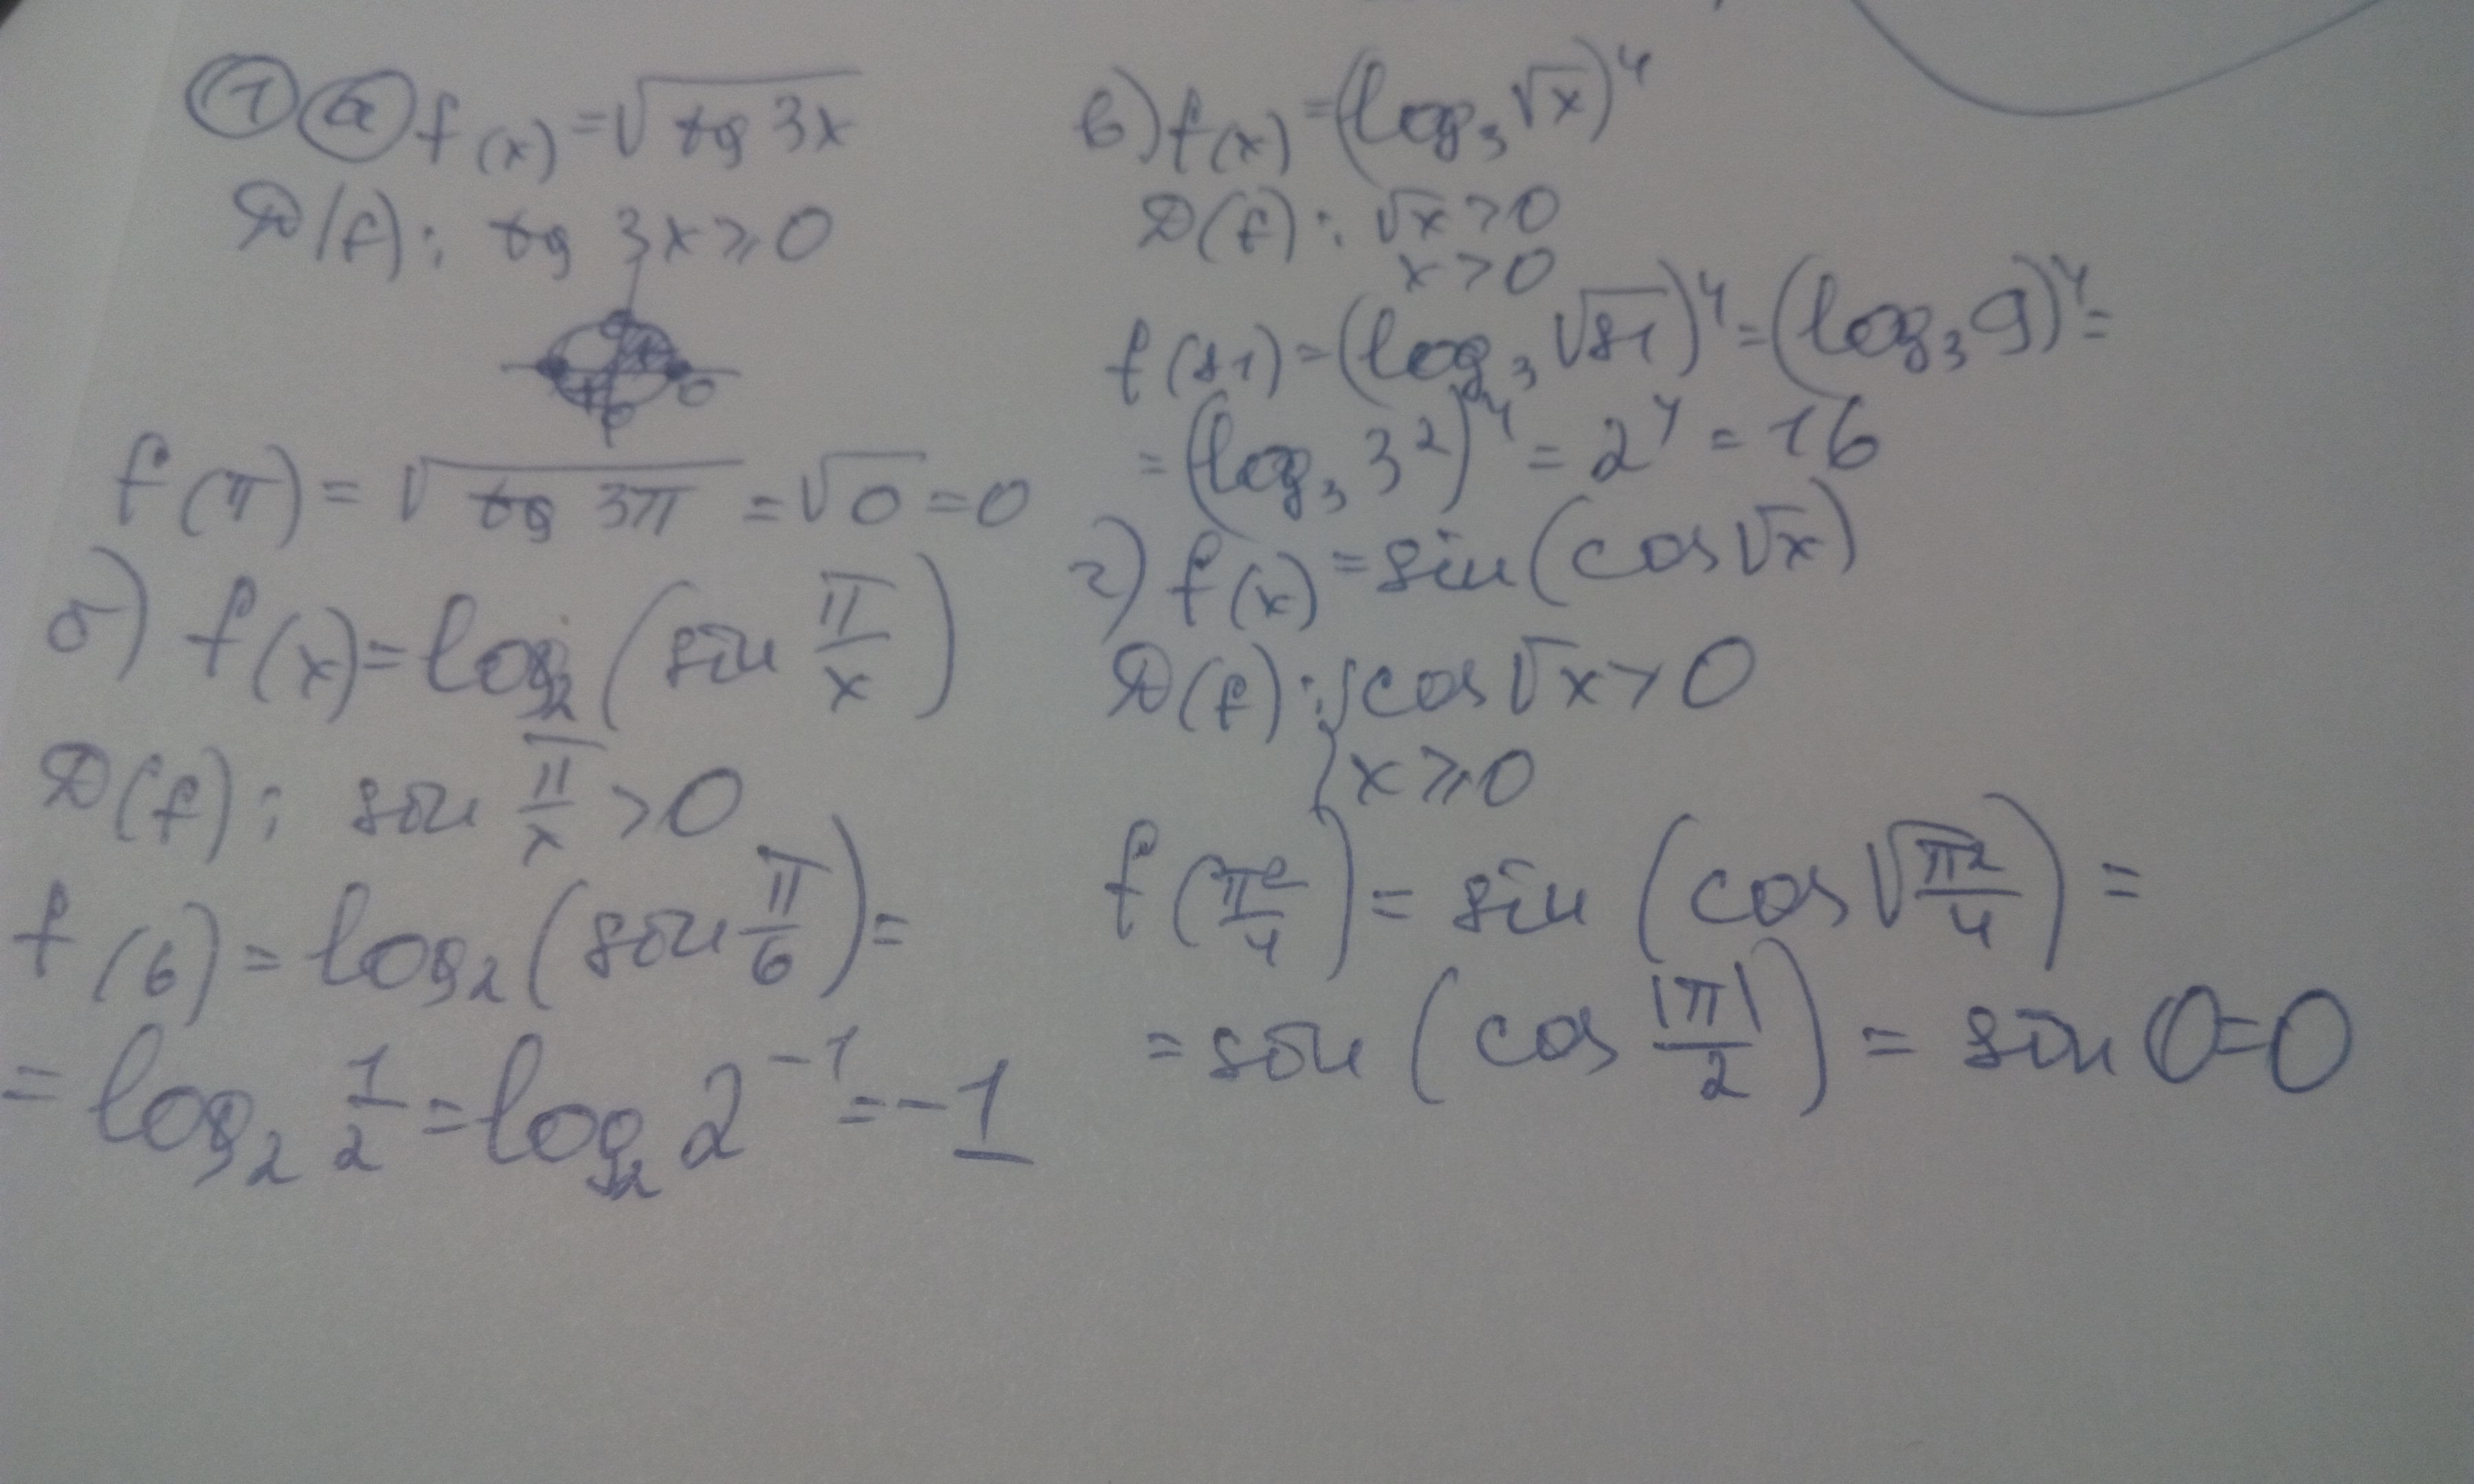 ① ⓐ f(x) = √(tg 3x)
D(f): tg 3x ⩾ 0
+
+ 0
f(π) = √(tg 3π) = √0 = 0
б) f(x) = log₂(sin π/x)
D(f): sin π/x > 0
f(6) = log₂(sin π/6) =
= log₂ 1/2 = log₂ 2⁻¹ = -1
в) f(x) = (log₃ √x)⁴
D(f): √x > 0
x > 0
f(81) = (log₃ √81)⁴ = (log₃ 9)⁴ =
= (log₃ 3²)⁴ = 2⁴ = 16
г) f(x) = sin(cos √x)
D(f): { cos √x > 0
x ⩾ 0
f(π²/4) = sin(cos √(π²/4)) =
= sin(cos |π|/2) = sin 0 = 0